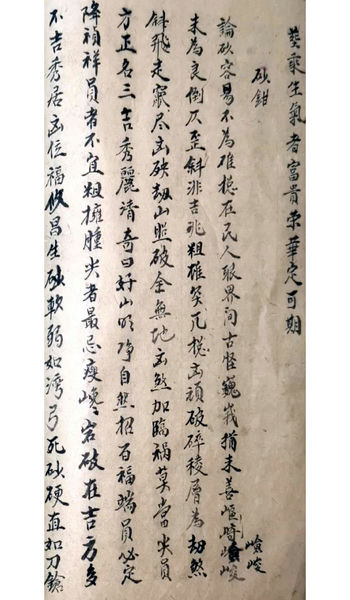 葬乘生氣者富貴荣華定可期
砂鉗
論砂容易不為难在民人眼界间古怪巍峩猶未善嶇崎嶮峻
嶮峻
未為良倒仄歪斜非吉兆粗雄兀凶頑破碎稜層為劫煞
斜飛走竄尽凶劫山照破全無地凶煞加臨禍莫當尖員
方正名三吉秀麗清奇曰好山明净自然招百福端員必定
降禎祥員者不宜粗擁腫尖者最忌瘦巉巉岩破在吉方多
不吉秀居凶位福攸昌生砂軟弱如湾弓死砂硬直如刀鎗